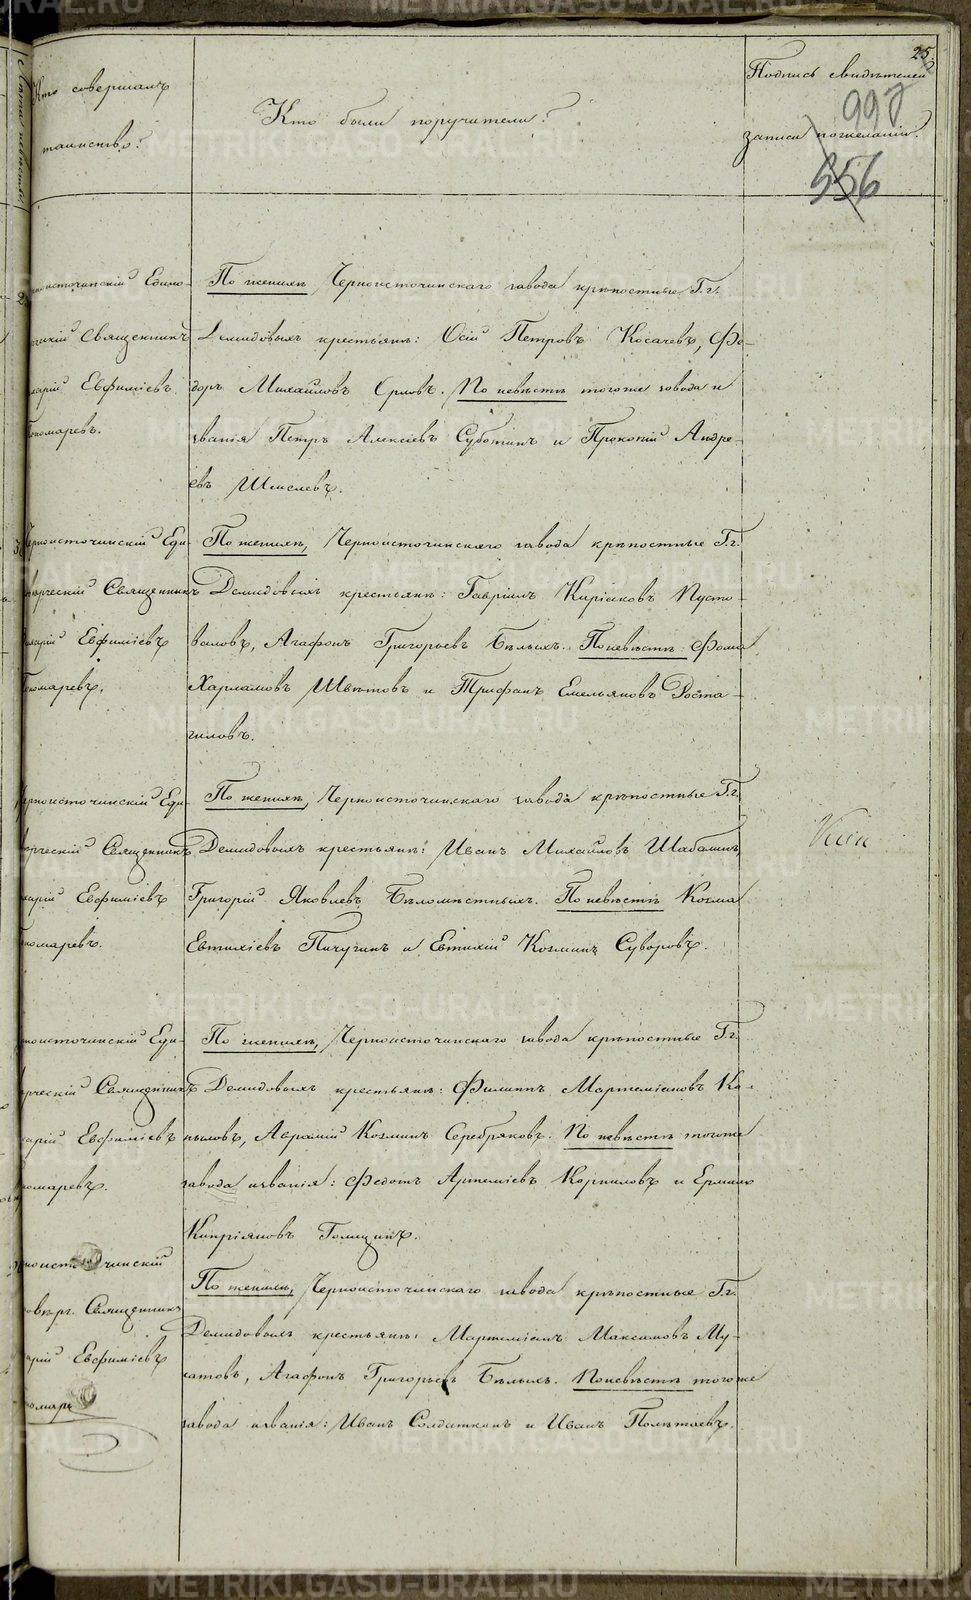 25
Кто совершалъ
таинство?
Кто были поручители?
Подпись свидѣтелей
записи по желанію.
997
956
Черноисточинскій Едино-
Священникъ
Евфиміевъ
Пономаревъ.
По женихѣ, Черноисточинскаго завода крѣпостные Г.г.
Демидовыхъ крестьяне: Осій Петровъ Косачевъ, Фе-
доръ Михайловъ Орловъ. По невѣстѣ тогоже завода и
званія Петръ Алексіевъ Суботинъ и Прокопій Андре-
евъ Шмелевъ.
Черноисточинскій Еди-
Священникъ
Евфиміевъ
Пономаревъ.
По женихѣ, Черноисточинскаго завода крѣпостные Г.г.
Демидовыхъ крестьяне: Гавріилъ Киріаковъ Пусто-
валовъ, Агафонъ Григорьевъ Бѣлыхъ. По невѣстѣ Фома
Харламовъ Швѣтовъ и Трифанъ Емельяновъ Роста-
гиловъ.
Черноисточинскій Еди-
Священникъ
Евфиміевъ
Пономаревъ.
По женихѣ, Черноисточинскаго завода крѣпостные Г.г.
Демидовыхъ крестьяне: Иванъ Михайловъ Шабалинъ
Григорій Яковлевъ Бѣломѣстныхъ. По невѣстѣ Козма
Евтихіевъ Пичугинъ и Евтихій Козминъ Суворовъ.
Черноисточинскій Еди-
Священникъ
Евфиміевъ
Пономаревъ.
По женихѣ, Черноисточинскаго завода крѣпостные Г.г.
Демидовыхъ крестьяне: Филиппъ Мартеміановъ Ко-
пыловъ, Аврамій Козминъ Серебряковъ. По невѣстѣ тогоже
завода и званія: Федотъ Артеміевъ Корниловъ и Ермилъ
Кипріяновъ Голицинъ.
Черноисточинскій
Священникъ
Евфиміевъ
По женихѣ, Черноисточинскаго завода крѣпостные Г.г.
Демидовыхъ крестьяне: Мартиміанъ Максимовъ Му-
хатовъ, Агафонъ Григорьевъ Бѣлыхъ. По невѣстѣ тогоже
завода и званія: Иванъ Солдаткинъ и Иванъ Полѣтаевъ.
METRIKI.GASO-URAL.RU